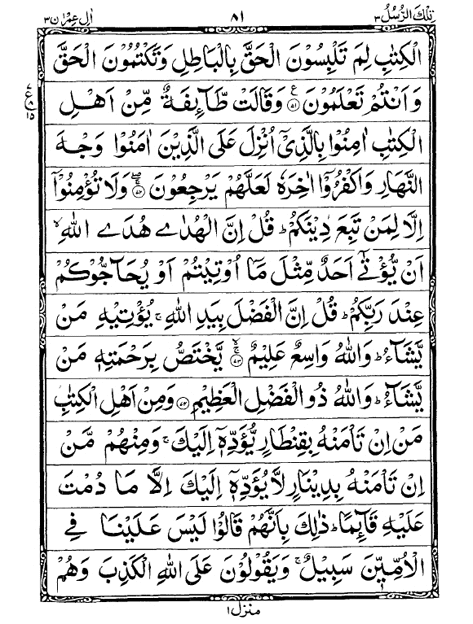 تِلْكَ الرُّسُلُ ٣ ٨١ اٰلِ عِمْرٰن ٣
الْكِتٰبِ لِمَ تَلْبِسُوْنَ الْحَقَّ بِالْبَاطِلِ وَتَكْتُمُوْنَ الْحَقَّ
وَاَنْتُمْ تَعْلَمُوْنَ ۝٧١ وَقَالَتْ طَّآئِفَةٌ مِّنْ اَهْلِ
الْكِتٰبِ اٰمِنُوْا بِالَّذِيْٓ اُنْزِلَ عَلَى الَّذِيْنَ اٰمَنُوْا وَجْهَ
النَّهَارِ وَاكْفُرُوْٓا اٰخِرَهٗ لَعَلَّهُمْ يَرْجِعُوْنَ ۝٧٢ وَلَا تُؤْمِنُوْٓا
اِلَّا لِمَنْ تَبِعَ دِيْنَكُمْ ؕ قُلْ اِنَّ الْهُدٰى هُدَى اللّٰهِ ۙ
اَنْ يُّؤْتٰٓى اَحَدٌ مِّثْلَ مَآ اُوْتِيْتُمْ اَوْ يُحَآجُّوْكُمْ
عِنْدَ رَبِّكُمْ ؕ قُلْ اِنَّ الْفَضْلَ بِيَدِ اللّٰهِ ۚ يُؤْتِيْهِ مَنْ
يَّشَآءُ ؕ وَاللّٰهُ وَاسِعٌ عَلِيْمٌ ۝٧٣ يَّخْتَصُّ بِرَحْمَتِهٖ مَنْ
يَّشَآءُ ؕ وَاللّٰهُ ذُو الْفَضْلِ الْعَظِيْمِ ۝٧٤ وَمِنْ اَهْلِ الْكِتٰبِ
مَنْ اِنْ تَاْمَنْهُ بِقِنْطَارٍ يُّؤَدِّهٖٓ اِلَيْكَ ۚ وَمِنْهُمْ مَّنْ
اِنْ تَاْمَنْهُ بِدِيْنَارٍ لَّا يُؤَدِّهٖٓ اِلَيْكَ اِلَّا مَا دُمْتَ
عَلَيْهِ قَآئِمًا ؕ ذٰلِكَ بِاَنَّهُمْ قَالُوْا لَيْسَ عَلَيْنَا فِى
الْاُمِّيّٖنَ سَبِيْلٌ ۚ وَيَقُوْلُوْنَ عَلَى اللّٰهِ الْكَذِبَ وَهُمْ
منزل ١